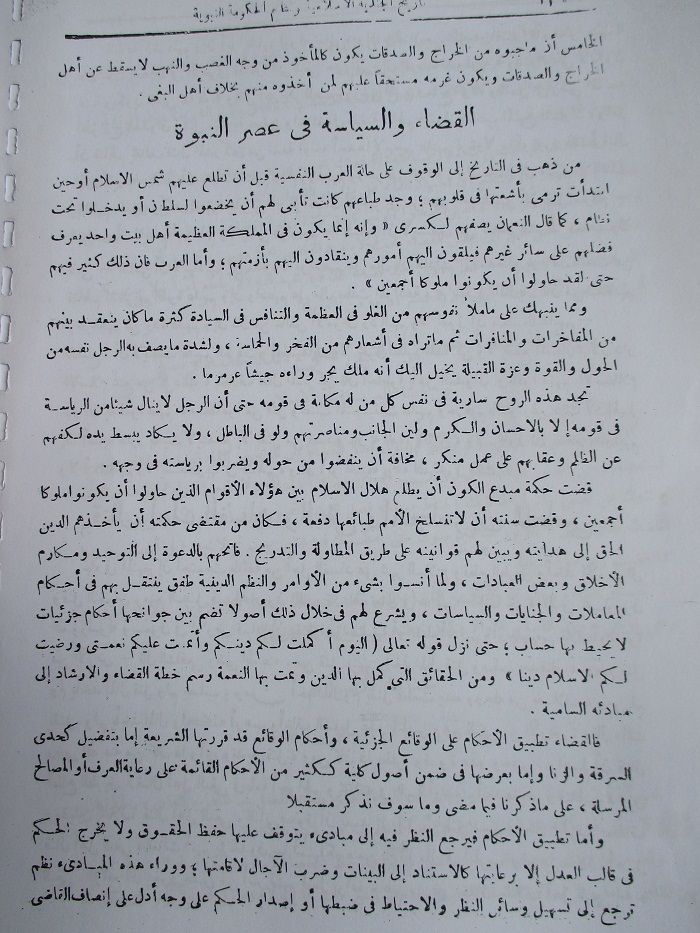 تاريخ الاسلامية ونظام الحكومة النبوية
الخامس أن ماجبوه من الخراج والصدقات يكون كالمأخوذ من وجه الغصب والنهب لايسقط عن أهل
الخراج والصدقات ويكون غرمه مستحقاً عليهم لمن أخذوه منهم بخلاف أهل البغى .
القضاء والسياسة فى عصر النبوة
من ذهب فى التاريخ إلى الوقوف على حالة العرب النفسية قبل أن تطلع عليهم شمس الاسلام أوحين
ابتدأت ترمى بأشعتها فى قلوبهم ؛ وجد طباعهم كانت تأبى لهم أن يخضعوا لسلطان أو يدخلوا تحت
نظام ، كما قال النعمان يصفهم لكسرى « وإنه إنما يكون فى المملكة العظيمة أهل بيت واحد يعرف
فضلهم على سائر غيرهم فيلقون اليهم أمورهم وينقادون اليهم بأزمتهم ؛ وأما العرب فان ذلك كثير فيهم
حتى لقد حاولوا أن يكونوا ملوكا أجمعين » .
ومما ينبهك على ماملأ نفوسهم من الغلو فى العظمة والتنافس فى السيادة كثرة ماكان ينعقد بينهم
من المفاخرات والمنافرات ثم ماتراه فى أشعارهم من الفخر والحماسة ، ولشدة مايصف به الرجل نفسه من
الحول والقوة وعزة القبيلة يخيل اليك أنه ملك يجر وراءه جيشاً عرمرما .
تجد هذه الروح سارية فى نفس كل من له مكانة فى قومه حتى أن الرجل لاينال شيئا من الرياسة
فى قومه إلا بالاحسان والكرم ولين الجانب ومناصرتهم ولو فى الباطل ، ولا يكاد يبسط يده لكفهم
عن الظلم وعقابهم على عمل منكر ، مخافة أن ينفضوا من حوله ويضربوا برياسته فى وجهه .
قضت حكمة مبدع الكون أن يطلع هلال الاسلام بين هؤلاء الأقوام الذين حاولوا أن يكونوا ملوكا
أجمعين ، وقضت سنته أن لاتنسلخ الأمم طبائعها دفعة ، فكان من مقتضى حكمته أن يأخذهم الدين
الحق إلى هدايته ويبين لهم قوانينه على طريق المطاولة والتدريج . فاتحهم بالدعوة إلى التوحيد ومكارم
الأخلاق وبعض العبادات ، ولما أنسوا بشىء من الأوامر والنظم الدينية طفق ينتقل بهم فى أحكام
المعاملات والجنايات والسياسات ، ويشرع لهم فى خلال ذلك أصولا تضم بين جوانحها أحكام جزئيات
لايحيط بها حساب ؛ حتى نزل قوله تعالى ( اليوم أكملت لكم دينكم وأتممت عليكم نعمتى ورضيت
لكم الاسلام دينا » ومن الحقائق التى كمل بها الدين وتمت بها النعمة رسم خطة القضاء والارشاد إلى
مبادئه السامية .
فالقضاء تطبيق الأحكام على الوقائع الجزئية ، وأحكام الوقائع قد قررتها الشريعة إما بتفصيل كحدى
السرقة والزنا وإما بعرضها فى ضمن أصول كلية ككثير من الأحكام القائمة على رعاية العرف أو المصالح
المرسلة ، على ماذكرنا فيما مضى وما سوف نذكر مستقبلا
وأما تطبيق الأحكام فيرجع النظر فيه إلى مبادىء يتوقف عليها حفظ الحقوق ولا يخرج الحكم
فى قالب العدل إلا برعايتها كالاستناد إلى البينات وضرب الآجال لاقامتها ؛ ووراء هذه المبادىء نظم
ترجع إلى تسهيل وسائل النظر والاحتياط فى ضبطها أو إصدار الحكم على وجه أدل على إنصاف القاضى